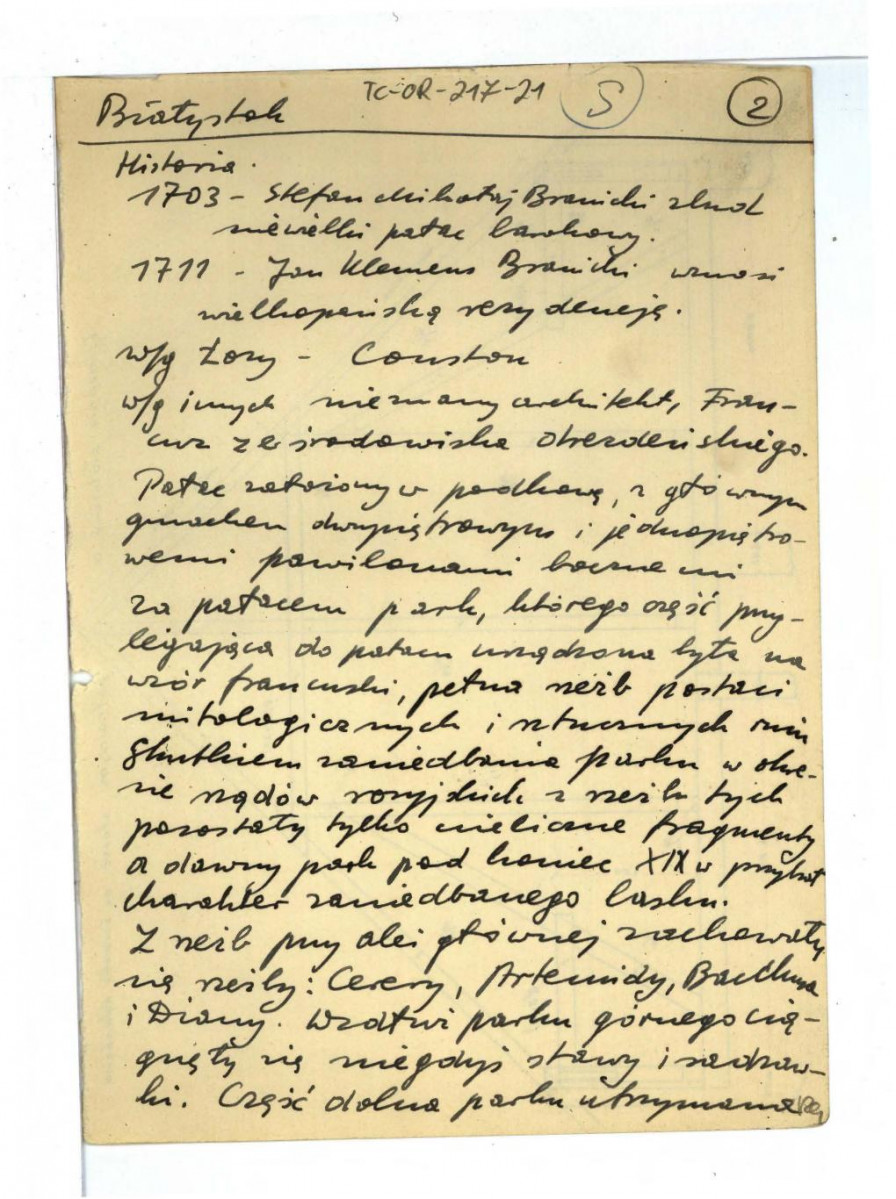 TC-OR-217-21
S
2
Białystok
Historia.
1703 - Stefan Mikołaj Branicki zbud
niewielki pałac barokowy.
1711 - Jan Klemens Branicki wznosi
wielkopańską rezydencję.
w/g Łozy -
w/g innych nieznany architekt, Fran-
cuz ze środowiska drezdeńskiego.
Pałac założony w podkowę, z głównym
gmachem dwupiętrowym i jednopiętro-
wemi pawilonami bocznemi
za pałacem park, którego część przy-
legająca do pałacu urządzona była na
wzór francuski, pełna rzeźb postaci
mitologicznych i sztucznych ruin
Skutkiem zaniedbania parku w okre-
sie rządów rosyjskich z rzeźb tych
pozostały tylko nieliczne fragmenty
a dawny park pod koniec XIX w przybrał
charakter zaniedbanego lasku.
Z rzeźb przy alei głównej zachowały
się rzeźby: Cerery, Artemidy, Bachusa
i Diany. Wzdłuż parku górnego cią-
gnęły się niegdyś stawy i sadzaw-
ki. Część dolna parku utrzymana